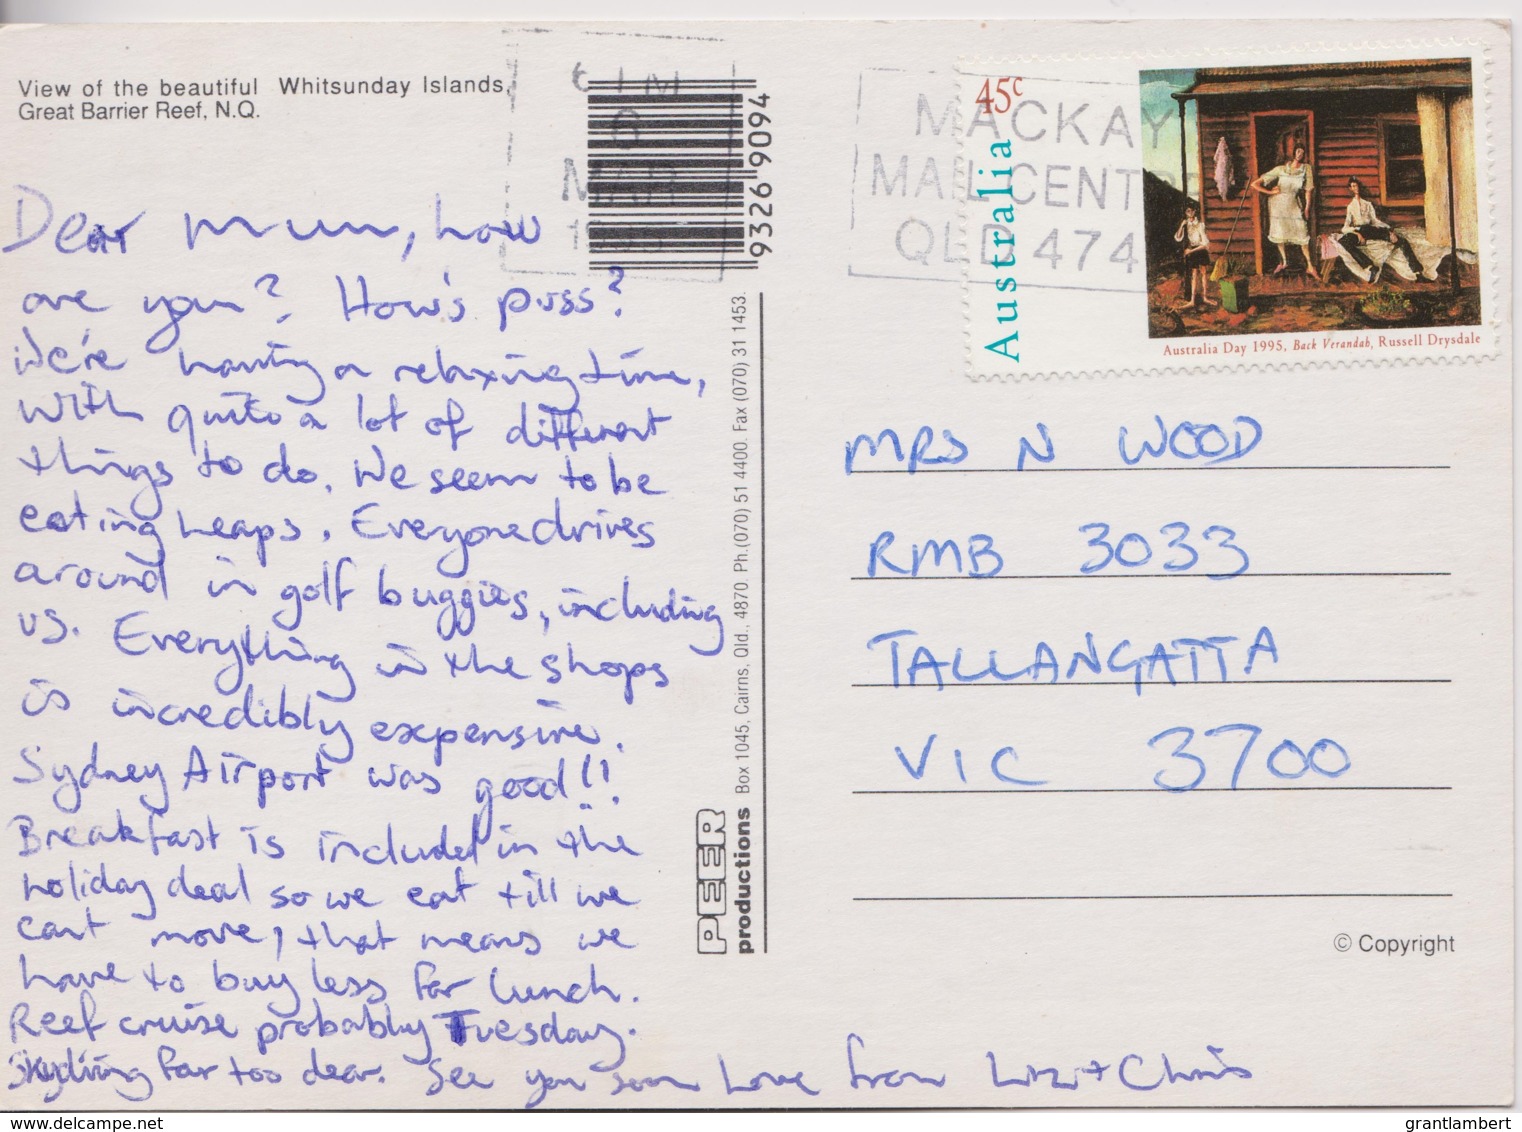 View of the beautiful Whitsunday Islands,
Great Barrier Reef, N.Q.
6 PM
6
MAR
9326 9094
MACKAY
MAIL CENT
QLD 474
45c
Australia
Australia Day 1995, Back Verandah, Russell Drysdale
Dear Mum, how
are you? How's puss?
We're having a relaxing time,
with quite a lot of different
things to do. We seem to be
eating heaps. Everyone drives
around in golf buggies, including
us. Everything in the shops
is incredibly expensive.
Sydney Airport was good!!
Breakfast is included in the
holiday deal so we eat till we
cant move, that means we
have to buy less for lunch.
Reef cruise probably Tuesday.
Skydiving far too dear. See you soon Love from Liz + Chris
PEER
productions Box 1045, Cairns, Qld., 4870. Ph.(070) 51 4400. Fax (070) 31 1453.
MRS N WOOD
RMB 3033
TALLANGATTA
VIC 3700
© Copyright
delcampe.net
grantlambert